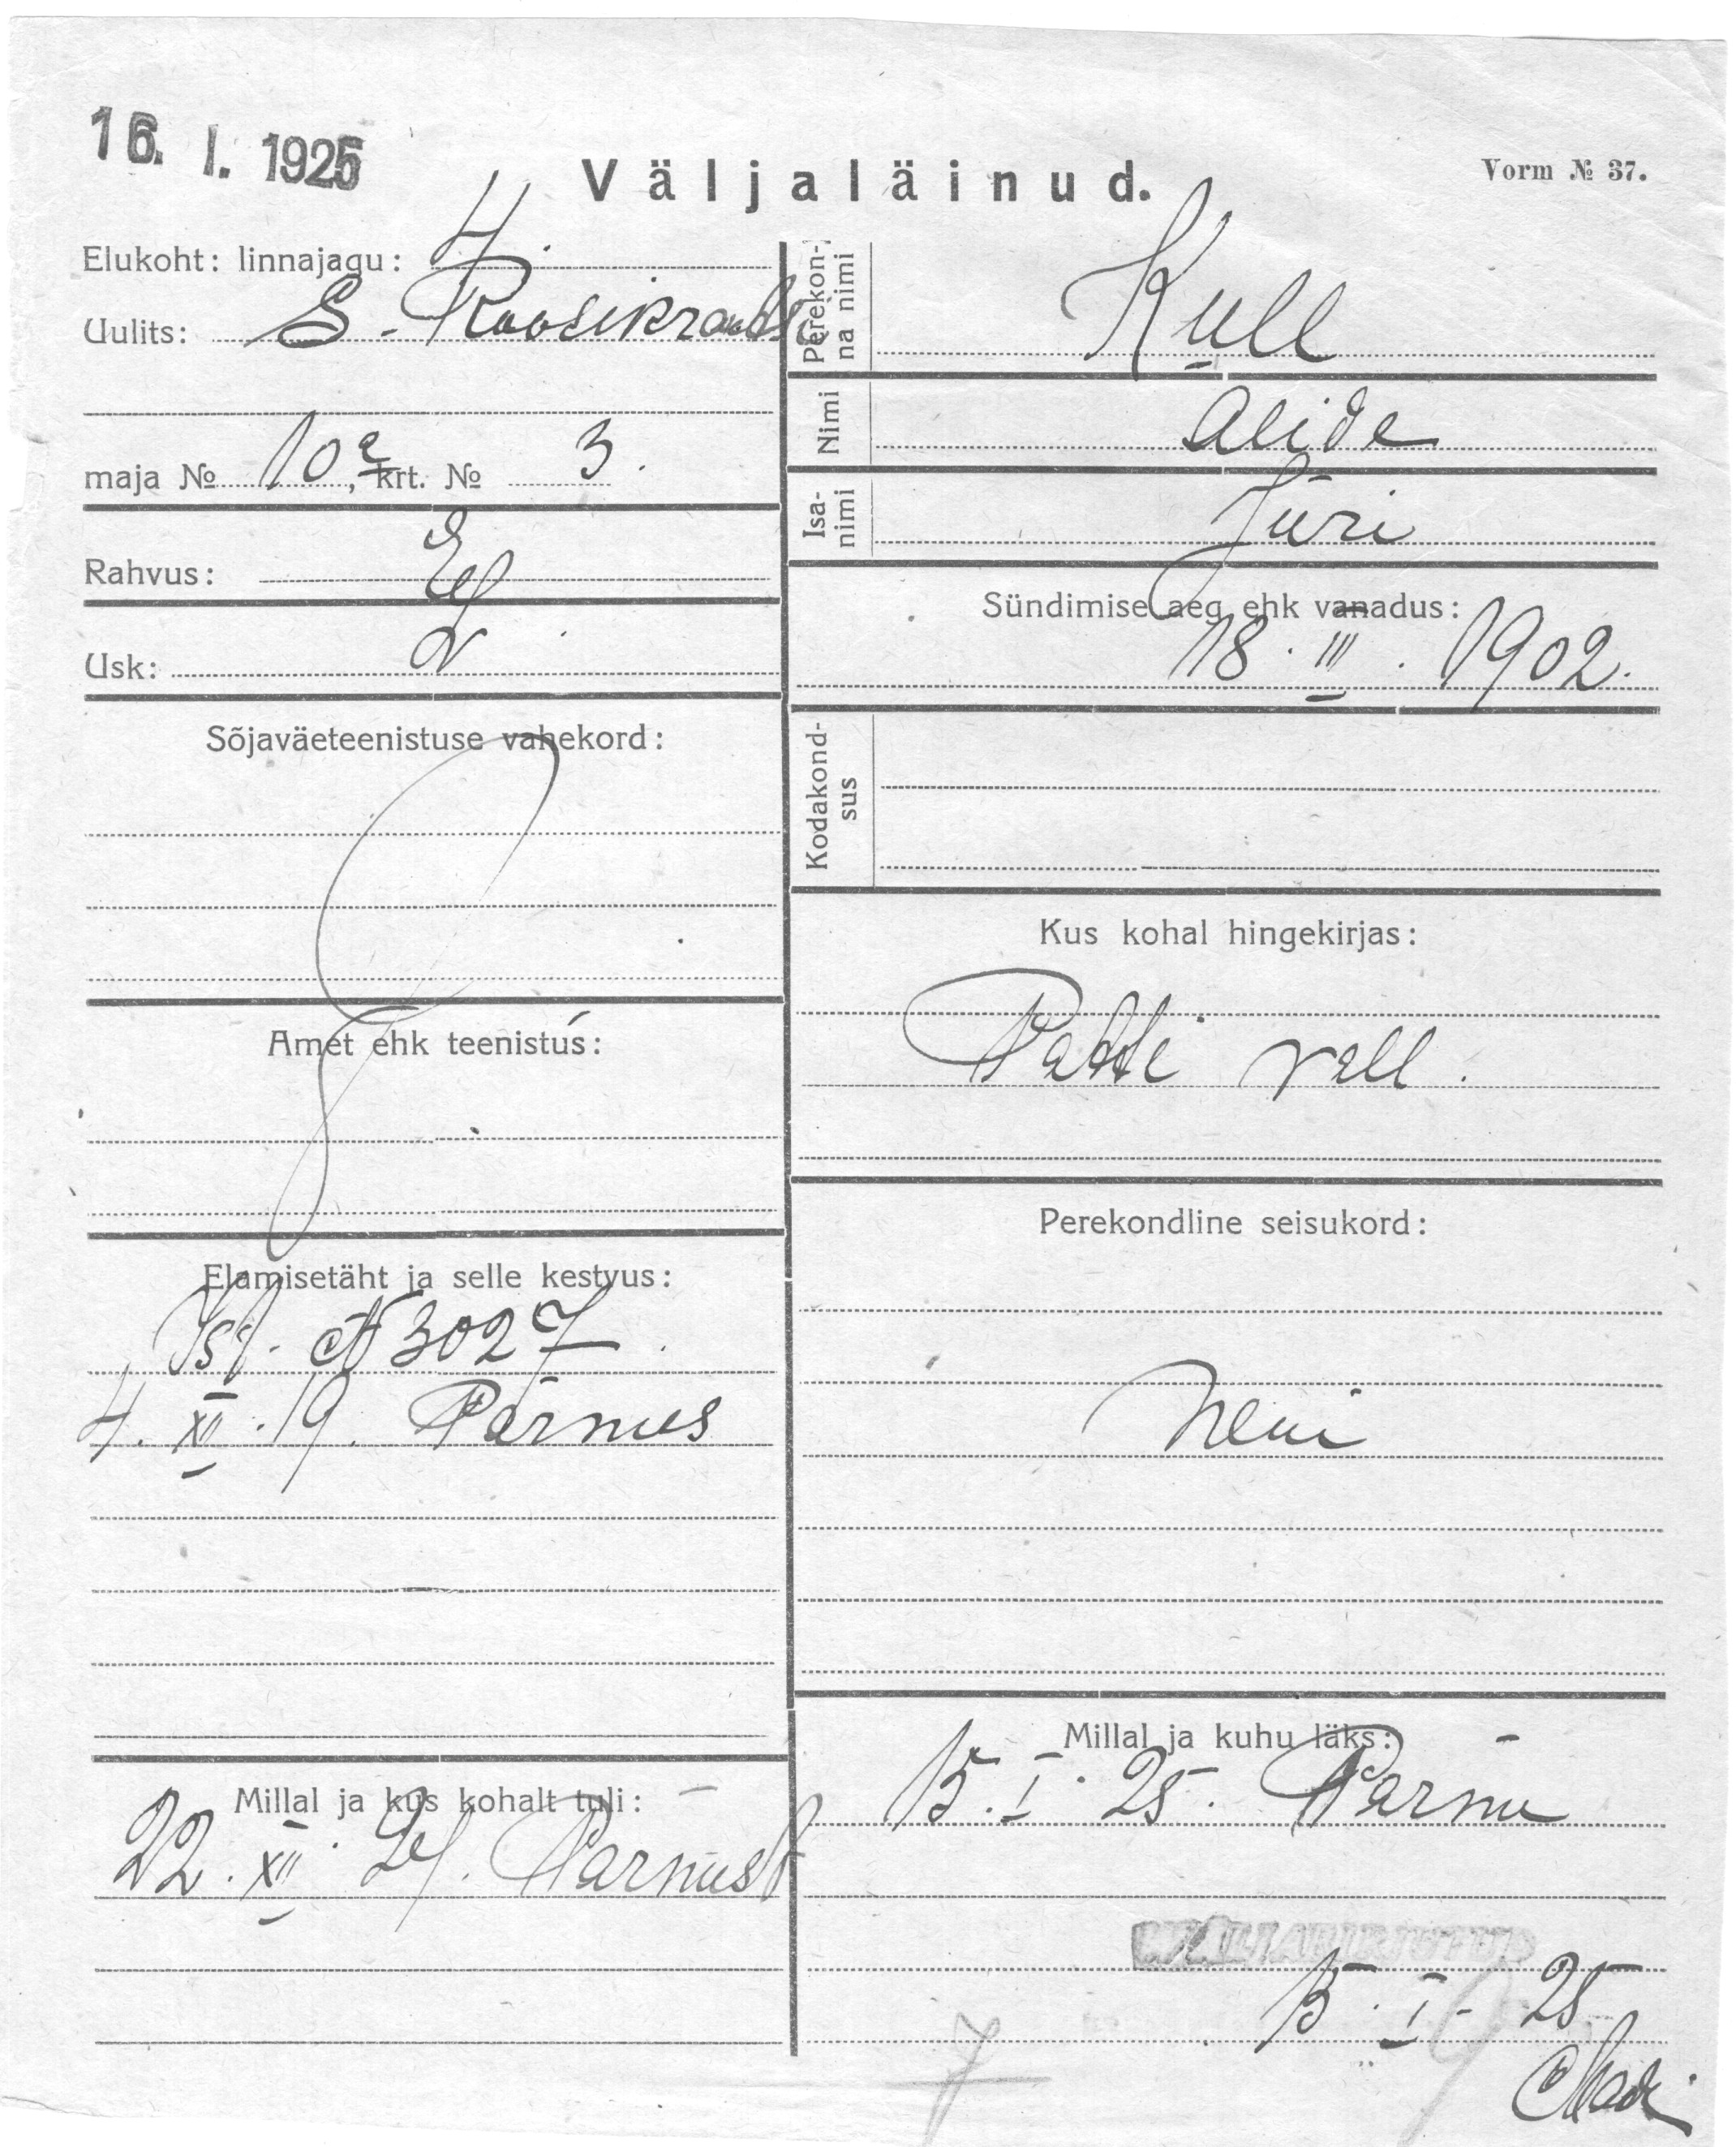 16. I. 1925
Väljaläinud.
Vorm № 37.
Elukoht: linnajagu: 4
Uulits: S. Roosikrantsi
maja № 10a, krt. № 3.
Rahvus: E
Usk:
Sõjaväeteenistuse vahekord:
Amet ehk teenistus:
Elamisetäht ja selle kestvus:
Isl. N 3027
4. XII. 19. Pärnus
Millal ja kus kohalt tuli:
22. XII 24. Pärnust
Perekon-
na nimi
Kull
Nimi
Alide
Isa-
nimi
Jüri
Sündimise aeg ehk vanadus:
18. III. 1902.
Kodakond-
sus
Kus kohal hingekirjas:
Patti vall.
Perekondline seisukord:
Neiu
Millal ja kuhu läks:
15. I. 25. Pärnu
VÄLJAKIRJUTUD
15. I. 25